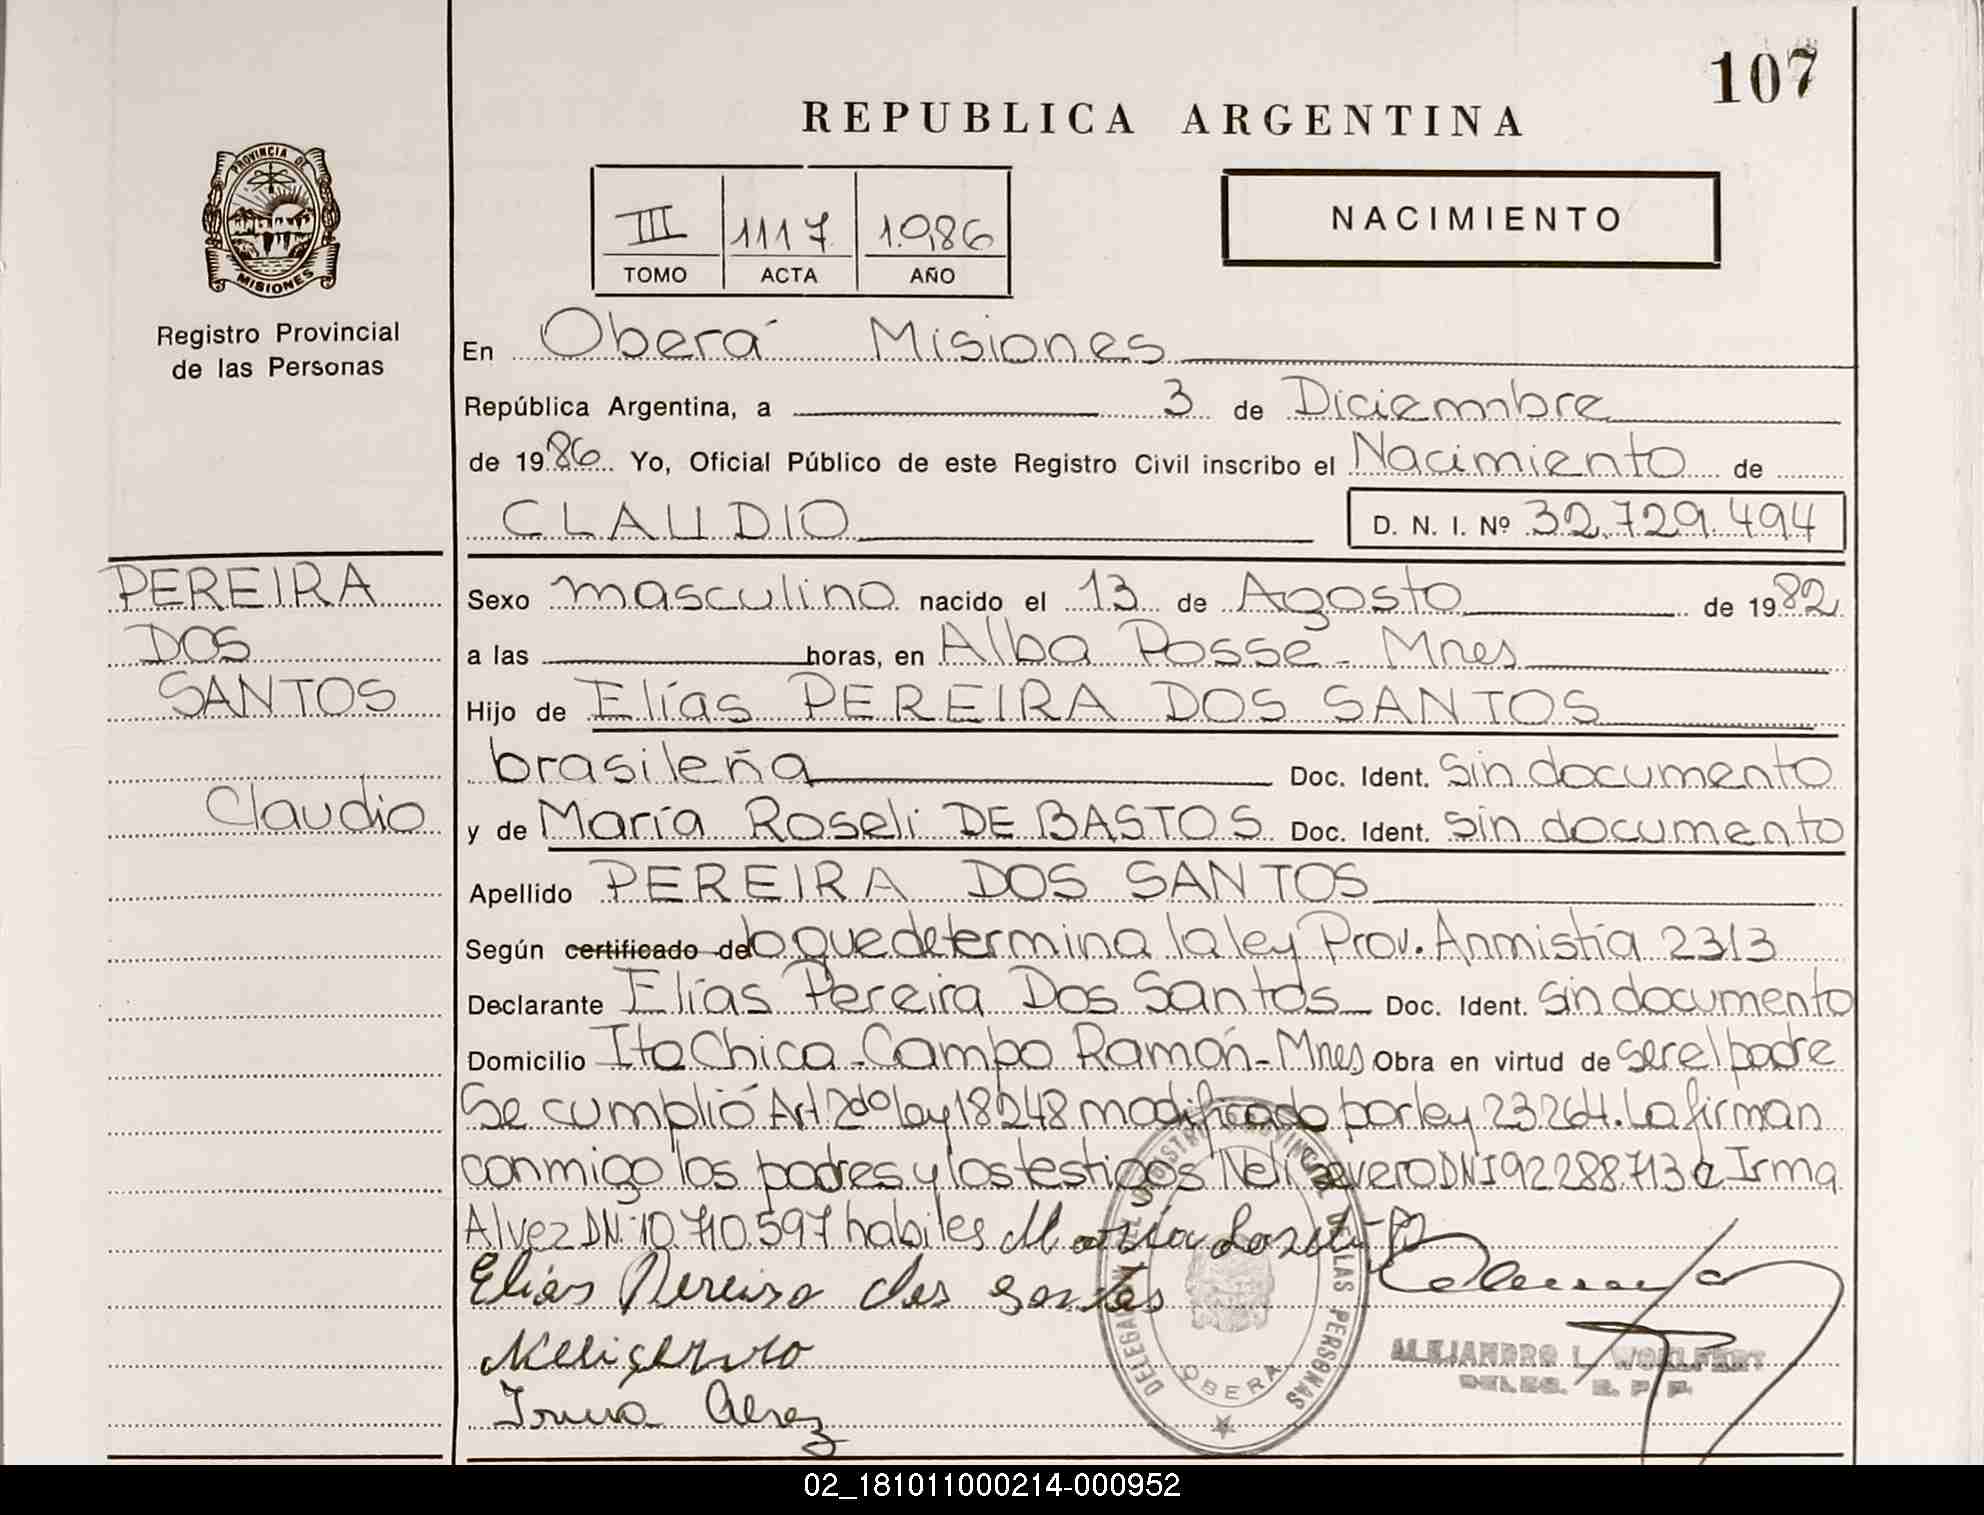 107
REPUBLICA ARGENTINA
PROVINCIA DE
MISIONES
Registro Provincial
de las Personas
III 1117 1.986
TOMO ACTA AÑO
NACIMIENTO
En Oberá Misiones
República Argentina, a 3 de Diciembre
de 1986 Yo, Oficial Público de este Registro Civil inscribo el Nacimiento de
CLAUDIO D. N. I. Nº 32.729.494
PEREIRA
DOS
SANTOS
Claudio
Sexo masculino nacido el 13 de Agosto de 1982
a las horas, en Alba Posse - Mnes
Hijo de Elías PEREIRA DOS SANTOS
brasileña Doc. Ident. Sin documento
y de María Roseli DE BASTOS Doc. Ident. Sin documento
Apellido PEREIRA DOS SANTOS
Según certificado de lo que determina la ley Prov. Anmistía 2313
Declarante Elías Pereira Dos Santos Doc. Ident. Sin documento
Domicilio Ita Chica - Campo Ramón - Mnes Obra en virtud de ser el padre
Se cumplió Art 2do ley 18248 modificado por ley 23264. La firman
conmigo los padres y los testigos Neli DNI 92288713 e Irma
Alvez DNI 10.710.597 habiles María
Elias Pereira dos Santos
Neli
Irma Alvez
DELEGACION DEL REGISTRO PROVINCIAL DE LAS PERSONAS
OBERA
ALEJANDRO L.
DELEG. R. P. P.
02_181011000214-000952